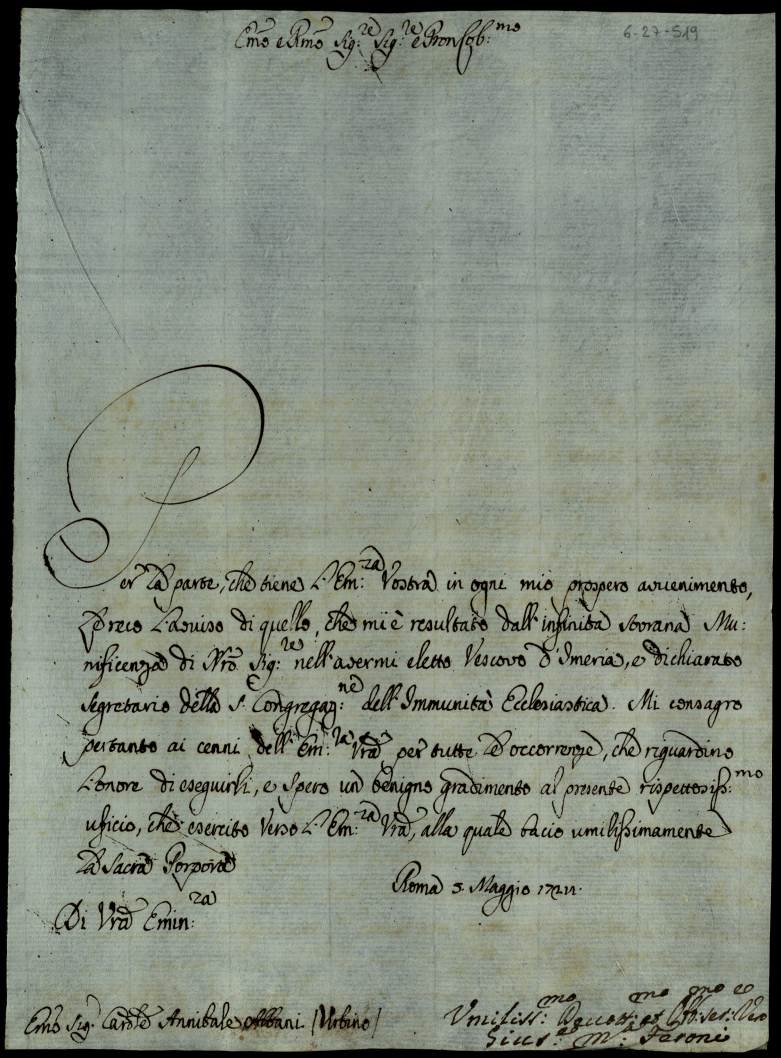 6-27-519
Emo e Rmo Sig:re Sig:re e Pron Col:mo
Per la parte, che tiene l'Em:za Vostra in ogni mio prospero avvenimento,
le reco l'aviso di quello, che mi è resultato dall'infinita sovrana Mu:
nificenza di Nro Sig:re nell'avermi eletto Vescovo d'Imeria, e dichiarato
Segretario della S. Congregaz:ne dell'Immunità Ecclesiastica. Mi consagro
pertanto ai cenni dell'Em:za Vra per tutte le occorrenze, che riguardino
l'onore di eseguirli, e spero un benigno gradimento al presente rispettosiss:mo
ufficio, che esercito verso l'Em:za Vra, alla quale bacio umilissimamente
la Sacra Porpora
Roma 5 Maggio
Di Vra Emin:za
Emo Sig. Cardle Annibale Albani (Urbino)
Umiliss:mo Devott:mo et
M: Feroni